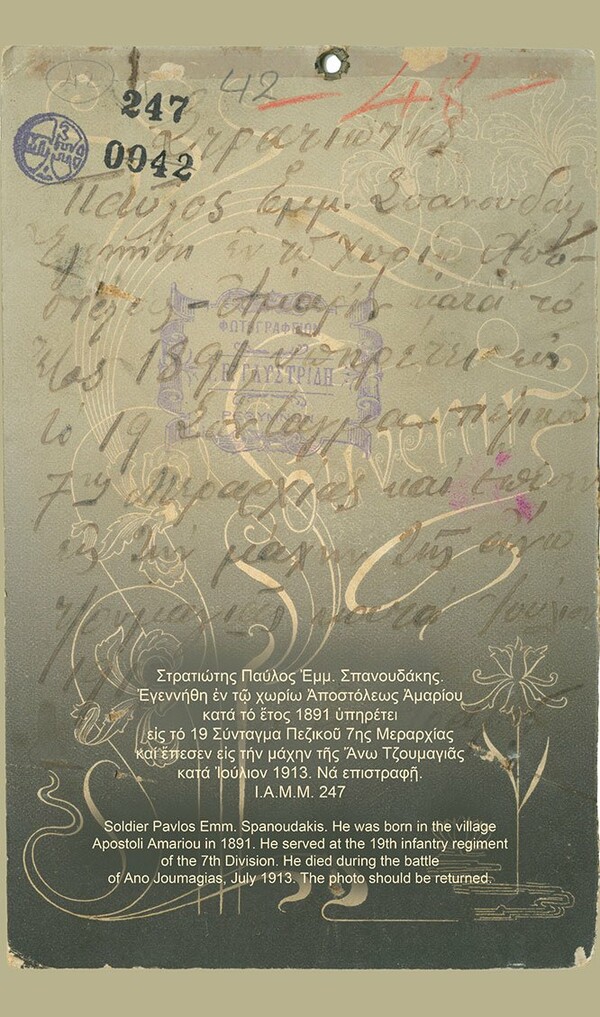 42
48
247
0042
Στρατιώτης
Παῦλος Ἐμμ. Σπανουδάκ
ἐν τῷ χωρίῳ Ἀπο-
στόλεως - Ἀμαρίου κατά τό
ἔτος 1891 ὑπηρέτει εἰς
τό 19 Σύνταγμα πεζικοῦ
7ης Μεραρχίας καί ἔπεσεν
εἰς τήν μάχην τῆς ἄνω
Τζουμαγιᾶς κατά Ἰούλιον
ΦΩΤΟΓΡΑΦΕΙΟΝ
ΡΕΘΥΜΝΗ
Souvenir
Στρατιώτης Παῦλος Ἐμμ. Σπανουδάκης.
Ἐγεννήθη ἐν τῷ χωρίω Ἀποστόλεως Ἀμαρίου
κατά τό ἔτος 1891 ὑπηρέτει
εἰς τό 19 Σύνταγμα Πεζικοῦ 7ης Μεραρχίας
καί ἔπεσεν εἰς τήν μάχην τῆς Ἄνω Τζουμαγιᾶς
κατά Ἰούλιον 1913. Νά επιστραφῆ.
Ι.Α.Μ.Μ. 247
Soldier Pavlos Emm. Spanoudakis. He was born in the village
Apostoli Amariou in 1891. He served at the 19th infantry regiment
of the 7th Division. He died during the battle
of Ano Joumagias, July 1913. The photo should be returned.